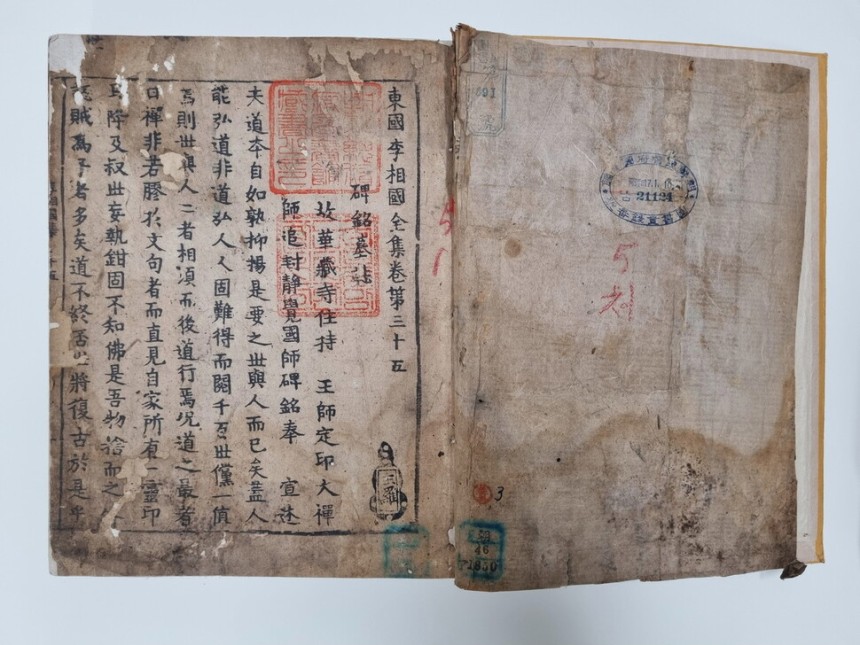 東國李相國全集卷第三十五
碑銘墓誌
故華藏寺住持 王師定印大禪
師追封靜覺國師碑銘奉 宣述
夫道本自如孰抑揚是要之世與人而已矣盖人
能弘道非道弘人人固難得而閱千百世儻一值
焉則世與人二者相須而後道行焉况道之最者
曰禪非若膠於文句者而直見自家所有一靈印
降及叔世妄執鉗固不知佛是吾物捨而之
賊爲子者多矣道不終否必將復古於是乎
21124
5
3
46
1850